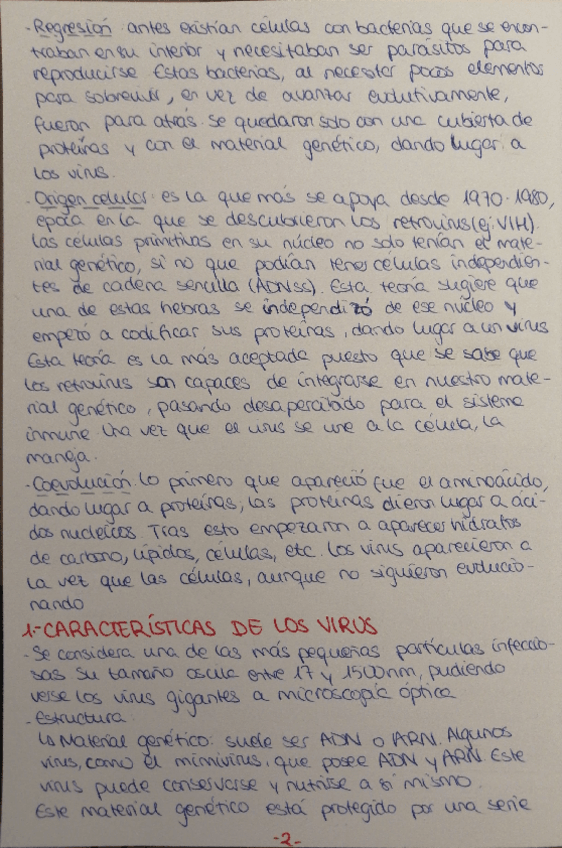 -Regresión: antes existían células con bacterias que se encon-
traban en su interior y necesitaban ser parásitos para
reproducirse. Estas bacterias, al necesitar pocos elementos
para sobrevivir, en vez de avanzar evolutivamente,
fueron para atrás. Se quedaron solo con una cubierta de
proteínas y con el material genético, dando lugar a
los virus.
-Origen celular: es la que más se apoya desde 1970-1980,
época en la que se descubrieron los retrovirus (ej: VIH).
Las células primitivas en su núcleo no solo tenían el mate-
rial genético, si no que podían tener células independien-
tes de cadena sencilla (ADNss). Esta teoría sugiere que
una de estas hebras se independizó de ese núcleo y
empezó a codificar sus proteínas, dando lugar a un virus
Esta teoría es la más aceptada puesto que se sabe que
los retrovirus son capaces de integrarse en nuestro mate-
rial genético, pasando desapercibido para el sistema
inmune. Una vez que el virus se une a la célula, la
maneja.
-Coevolución: lo primero que apareció fue el aminoácido,
dando lugar a proteínas; las proteínas dieron lugar a áci-
dos nucleicos. Tras esto empezaron a aparecer hidratos
de carbono, lípidos, células, etc. Los virus aparecieron a
la vez que las células, aunque no siguieron evolucio-
nando
1-CARACTERÍSTICAS DE LOS VIRUS
-Se considera una de las más pequeñas partículas infeccio-
sas. Su tamaño oscila entre 17 y 1500nm, pudiendo
verse los virus gigantes a microscopía óptica
-Estructura:
↳ Material genético: suele ser ADN o ARN. Algunos
virus, como el mimivirus, que posee ADN y ARN. Este
virus puede conservarse y nutrirse a sí mismo.
Este material genético está protegido por una serie
-2-